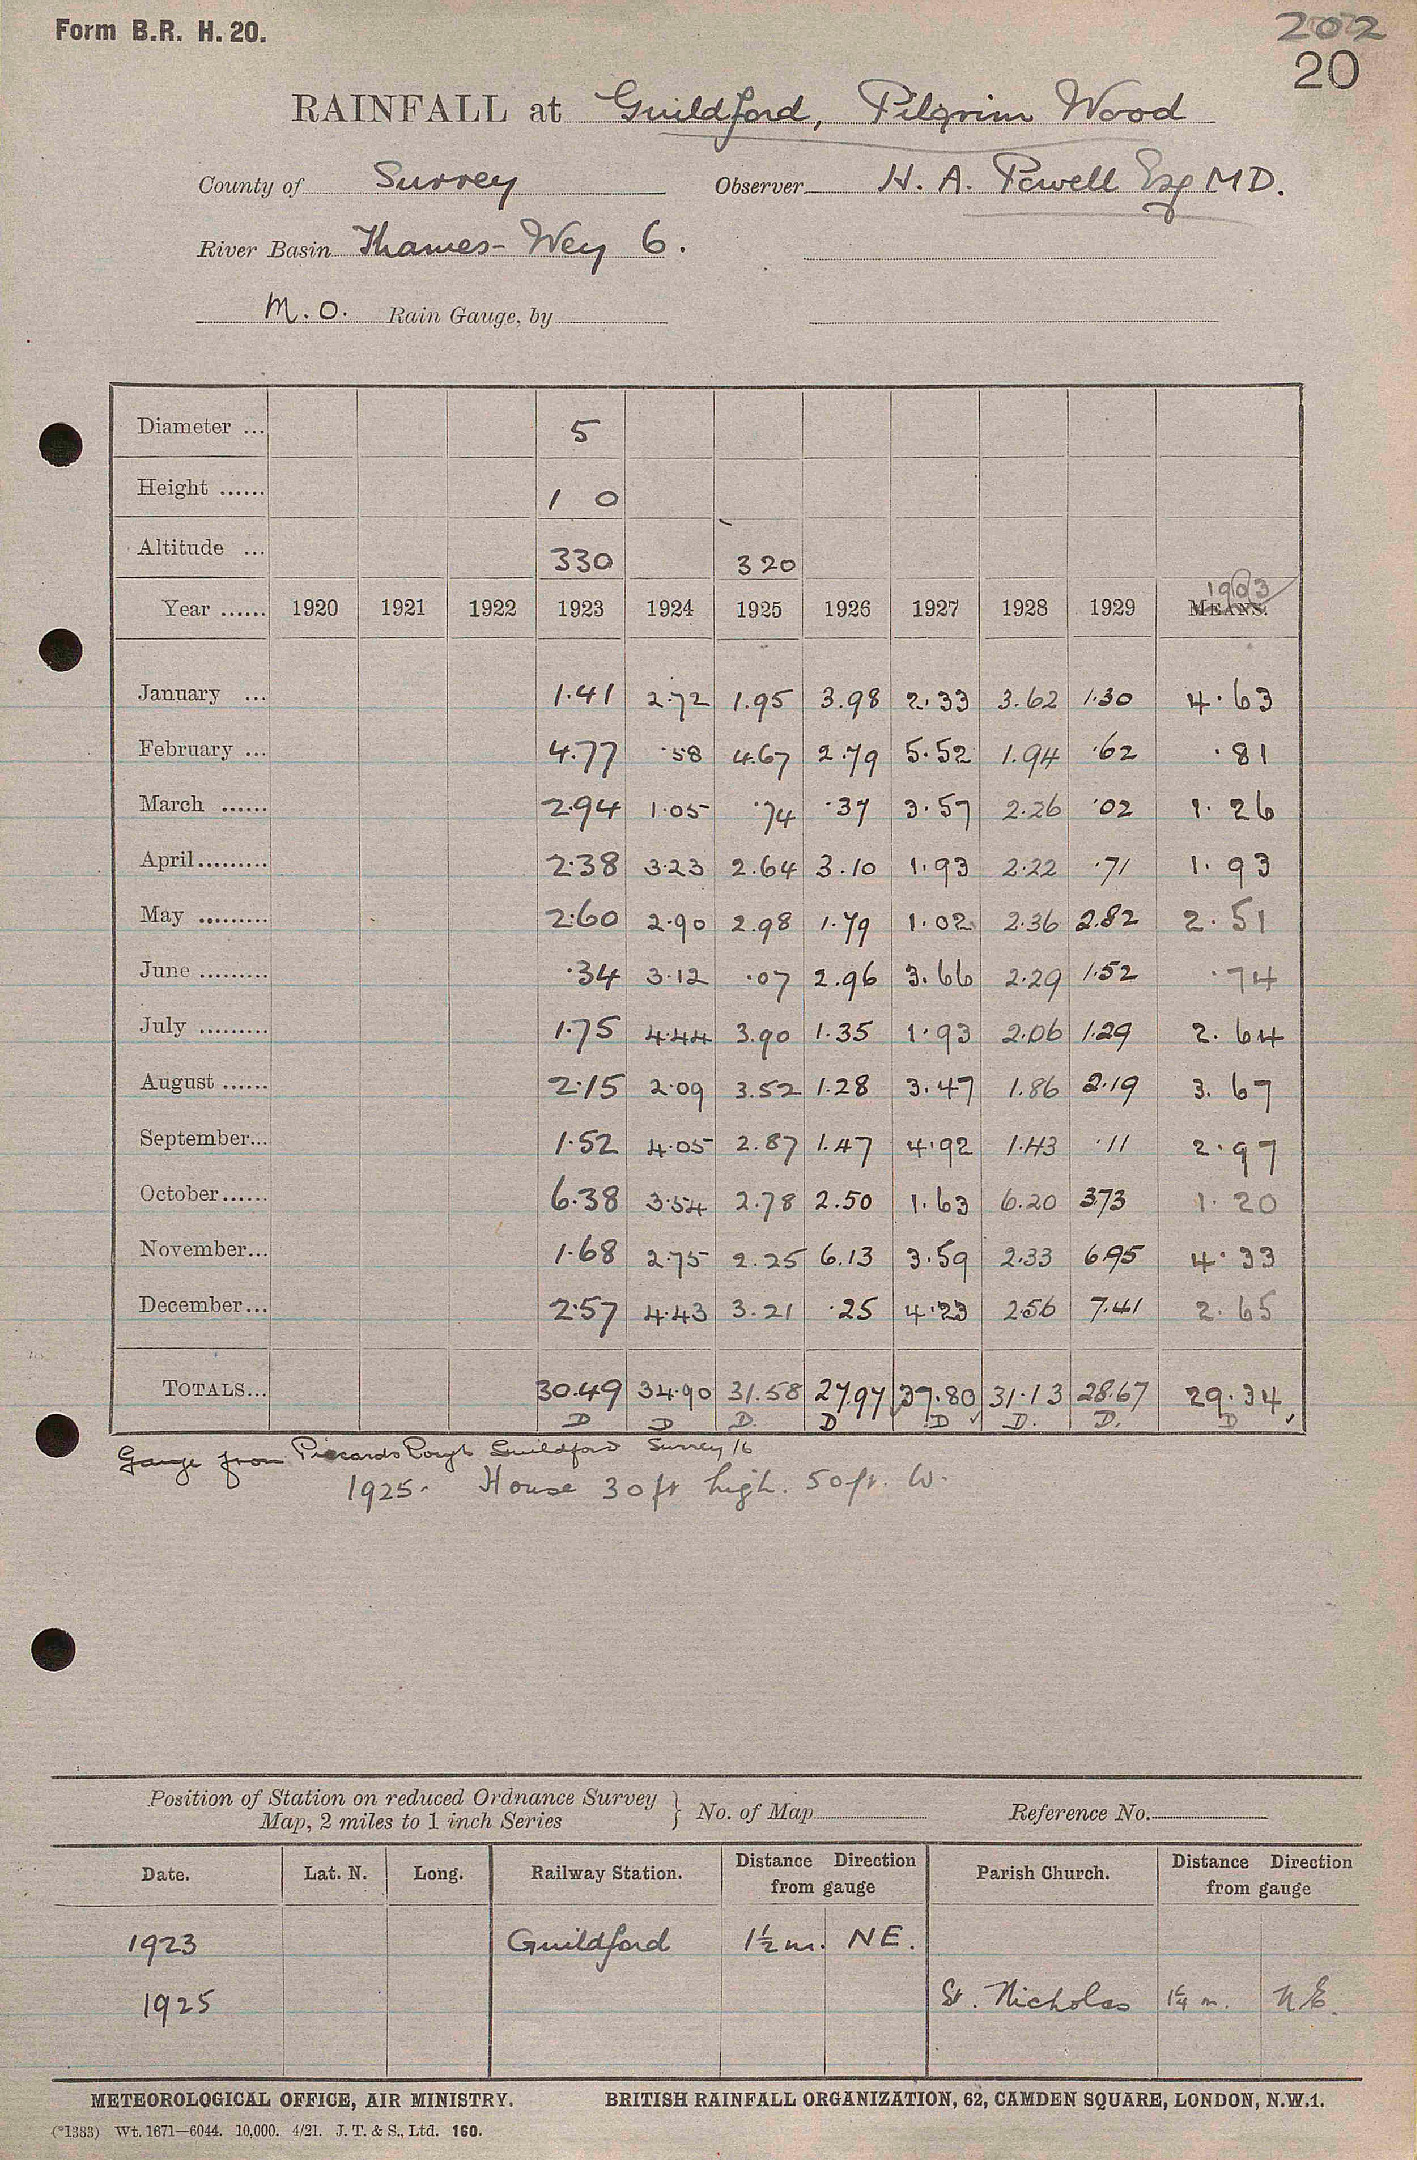 Form B.R. H. 20.
202
20
RAINFALL at Guildford, Pilgrim Wood
County of Surrey Observer H. A. Powell Esq MD.
River Basin Thames - Wey 6.
M.O. Rain Gauge, by
Diameter ... 5
Height ...... 1 0
Altitude ... 330 320
1903
Year ...... 1920 1921 1922 1923 1924 1925 1926 1927 1928 1929 MEANS.
January ... 1.41 2.72 1.95 3.98 2.33 3.62 1.30 4.63
February ... 4.77 .58 4.67 2.79 5.52 1.94 .62 .81
March ...... 2.94 1.05 .74 .37 3.57 2.26 .02 1.26
April ......... 2.38 3.23 2.64 3.10 1.93 2.22 .71 1.93
May ......... 2.60 2.90 2.98 1.79 1.02 2.36 2.82 2.51
June ......... .34 3.12 .07 2.96 3.66 2.29 1.52 .74
July ......... 1.75 4.44 3.90 1.35 1.93 2.06 1.29 2.64
August ...... 2.15 2.09 3.52 1.28 3.47 1.86 2.19 3.67
September... 1.52 4.05 2.87 1.47 4.92 1.43 .11 2.97
October...... 6.38 3.54 2.78 2.50 1.63 6.20 3.73 1.20
November... 1.68 2.75 2.25 6.13 3.59 2.33 6.95 4.33
December... 2.57 4.43 3.21 .25 4.23 2.56 7.41 2.65
TOTALS... 30.49 34.90 31.58 27.97 37.80 31.13 28.67 29.34
D D D. D D ✓ D. D. D ✓
Gauge from Guildford Surrey 16
1925. House 30ft high. 50ft. W.
Position of Station on reduced Ordnance Survey
Map, 2 miles to 1 inch Series } No. of Map Reference No.
Date. Lat. N. Long. Railway Station. Distance Direction from gauge Parish Church. Distance Direction from gauge
1923 Guildford 1½ m. NE.
1925 St. Nicholas 1¼ m. N.E.
METEOROLOGICAL OFFICE, AIR MINISTRY. BRITISH RAINFALL ORGANIZATION, 62, CAMDEN SQUARE, LONDON, N.W.1.
(*1383) Wt. 1671—6044. 10,000. 4/21. J. T. & S., Ltd. 160.